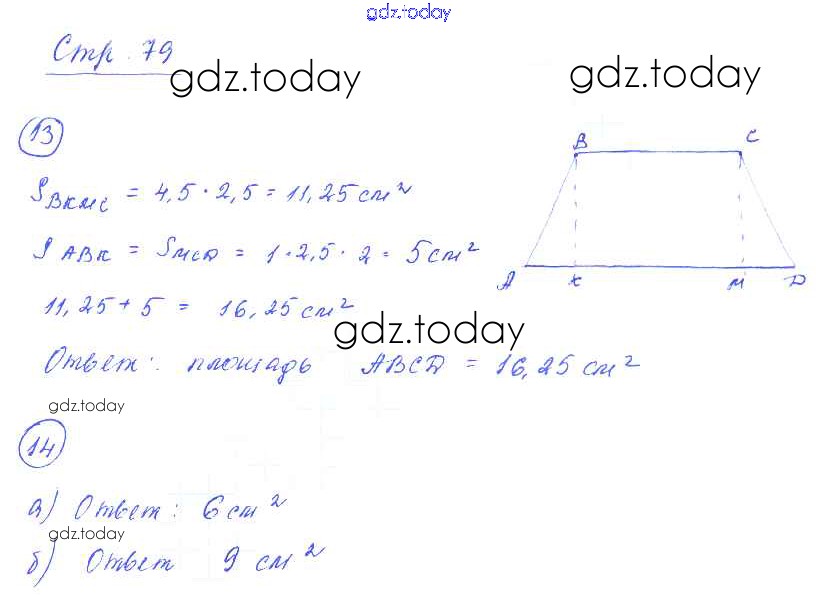 gdz.today
Стр. 79
gdz.today gdz.today
13
S BKMC = 4,5 · 2,5 = 11,25 см²
S ABK = S MCD = 1 · 2,5 · 2 = 5 см²
11,25 + 5 = 16,25 см²
gdz.today
Ответ: площадь ABCD = 16,25 см²
B C
A K M D
gdz.today
14
а) Ответ: 6 см²
gdz.today
б) Ответ 9 см²